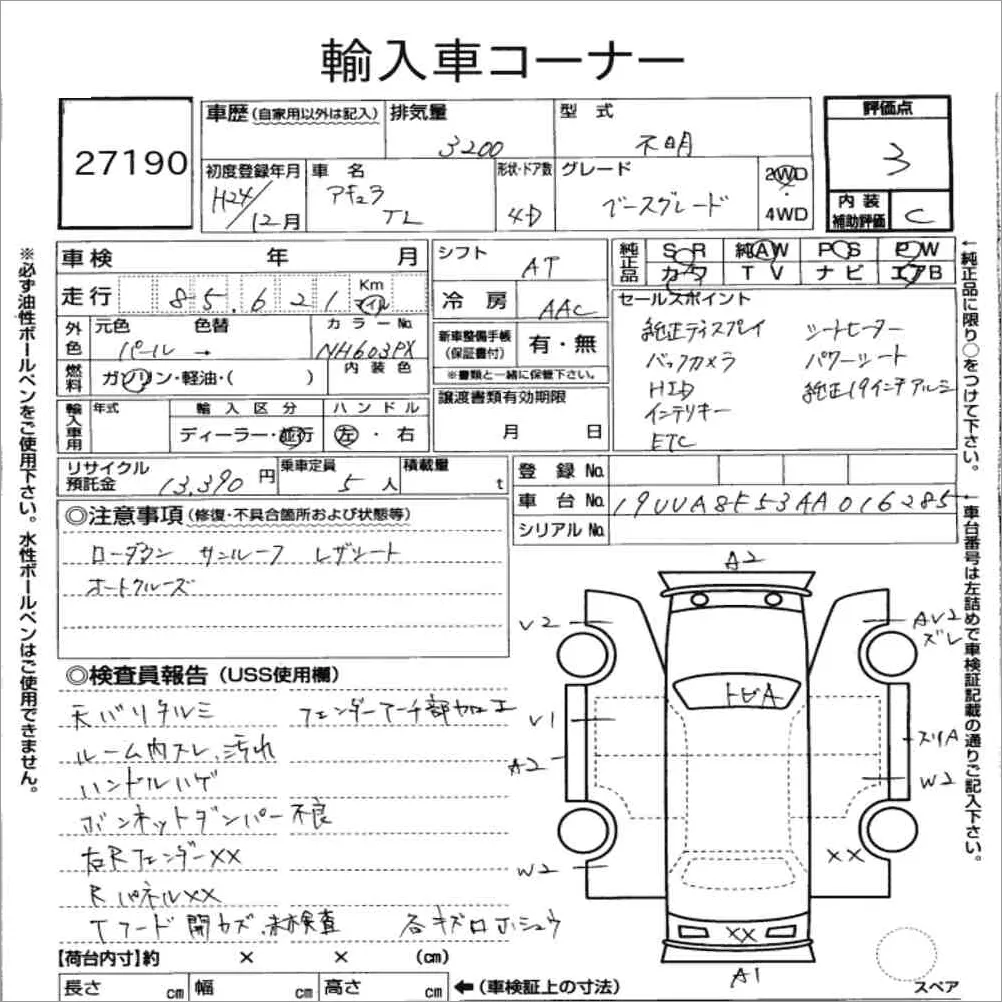 輸入車コーナー
27190
車歴(自家用以外は記入)
排気量
3200
型式
不明
評価点
3
初度登録年月
H24/12月
車名
アキュラ
TL
形状・ドア数
4D
グレード
ベースグレード
2WD
4WD
内装補助評価
C
車検 年 月
シフト
AT
純正品
SR 純AW PS PW
カワ TV ナビ エアB
走行 85,621 Km マイル
冷房
AAC
セールスポイント
純正ディスプレイ シートヒーター
バックカメラ パワーシート
HID 純正19インチアルミ
インテリキー
ETC
外色
元色 色替
パール →
カラーNo.
NH603PX
新車整備手帳(保証書付)
有・無
※書類と一緒に保管下さい。
燃料
ガソリン・軽油・( )
内装色
譲渡書類有効期限
月 日
輸入車用
年式
輸入区分
ディーラー・並行
ハンドル
左・右
リサイクル預託金
13,390円
乗車定員
5人
積載量
t
登録No.
車台No.
19UUA8F53AA016285
シリアルNo.
◎注意事項(修復・不具合箇所および状態等)
ローダウン サンルーフ レザシート
オートクルーズ
◎検査員報告(USS使用欄)
天バリタルミ フェンダーアーチ部加工
ルーム内スレ、汚れ
ハンドルハゲ
ボンネットダンパー不良
右Rフェンダー××
RパネルXX
Tフード開カズ、未検査 各キズロホシュウ
A2
V2
AV2
ズレ
トビA
V1
スリA
A2
W2
W2
××
××
A1
スペア
【荷台内寸】約 × × (cm)
長さ cm 幅 cm 高さ cm
←(車検証上の寸法)
※必ず油性ボールペンをご使用下さい。水性ボールペンはご使用できません。
←純正品に限り○をつけて下さい。
←車台番号は左詰めで車検証記載の通りご記入下さい。